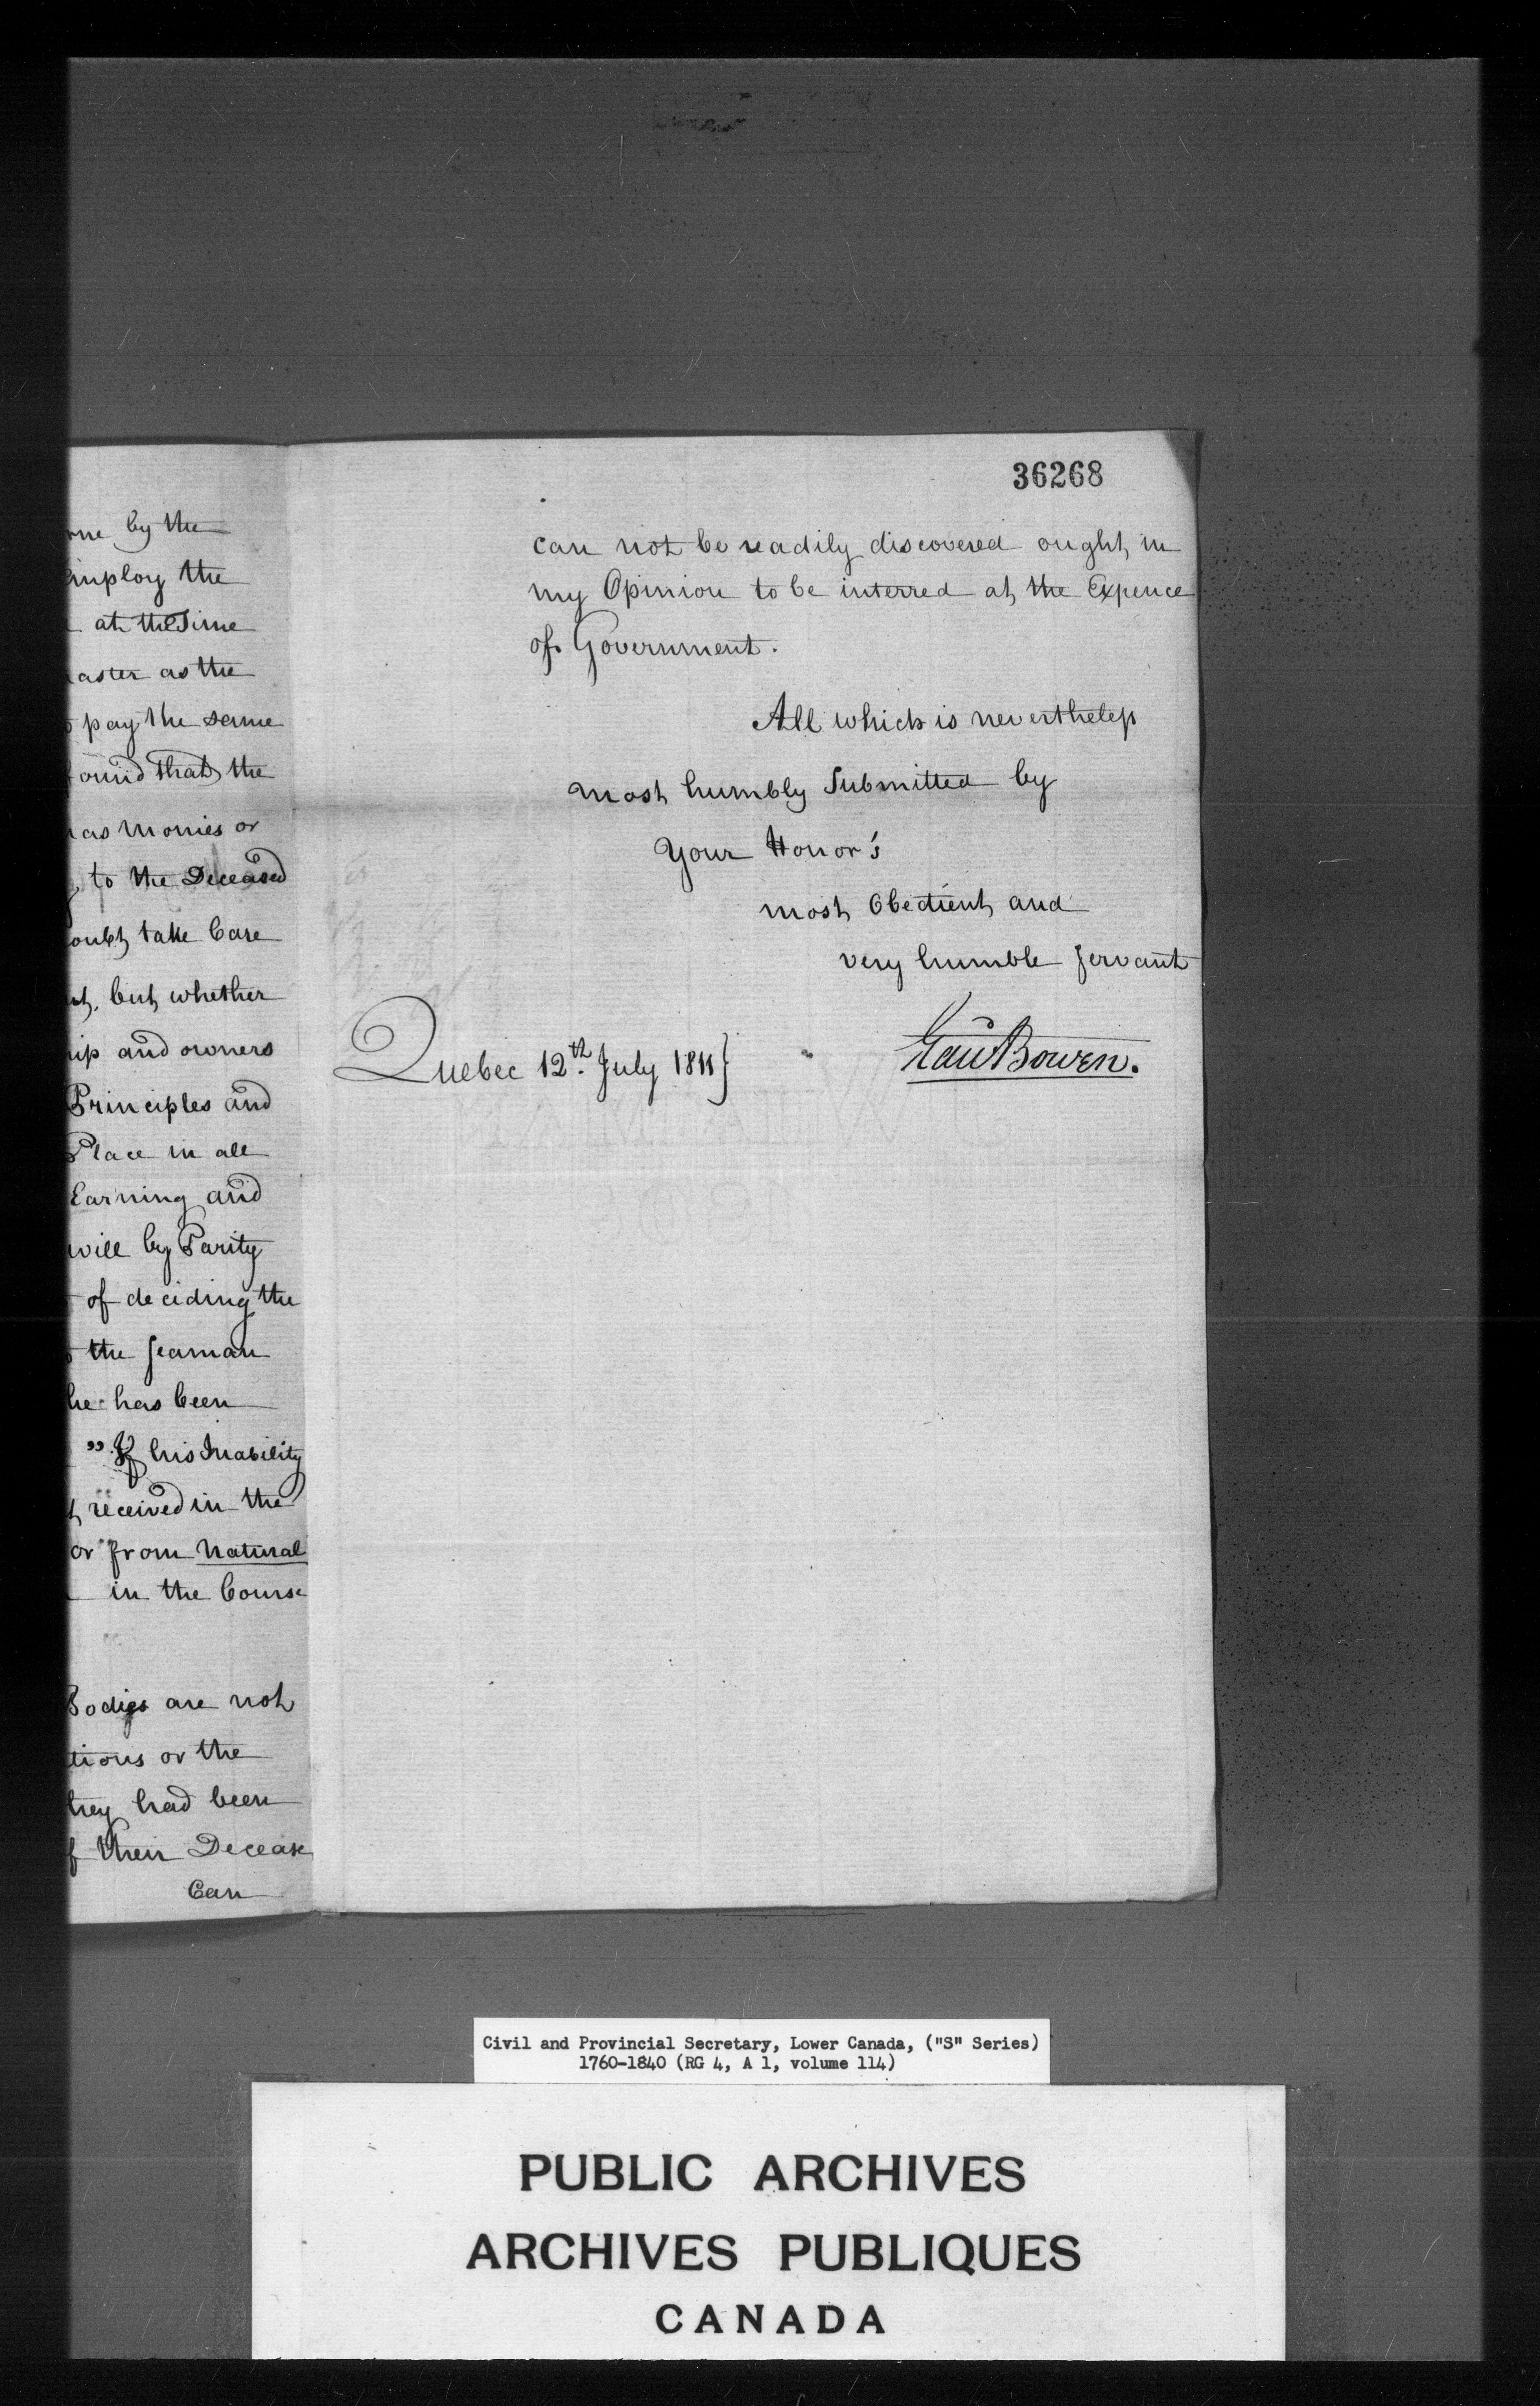 by the
employ the
at the Time
as the
pay the same
found that the
as Monies or
to the Deceased
take Care
but whether
and owners
Principles and
Place in all
Earning and
will by Parity
of deciding the
the Seaman
he has been
" If his Inability
received in the
or from Natural
in the Course
Bodies are not
or the
they had been
of their Decease
Can
36268
can not be readily discovered ought in
my Opinion to be interred at the Expence
of Government.
All which is nevertheless
most humbly Submitted by
Your Honor's
most Obedient and
very humble Servant
Quebec 12th. July 1811}
Edw Bowen.
Civil and Provincial Secretary, Lower Canada, ("S" Series)
1760-1840 (RG 4, A 1, volume 114)
PUBLIC ARCHIVES
ARCHIVES PUBLIQUES
CANADA